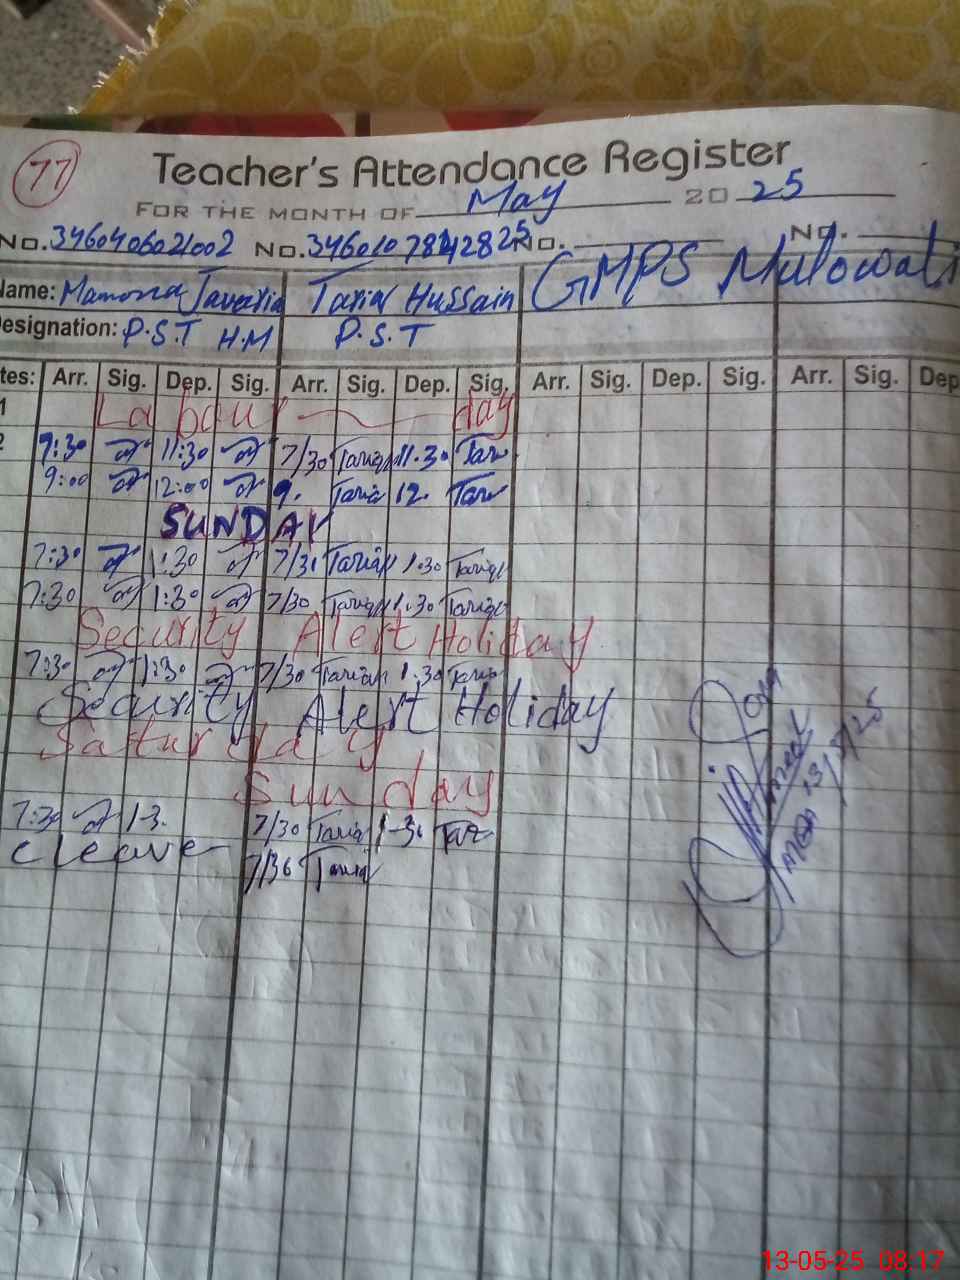 77
Teacher's Attendance Register
FOR THE MONTH OF May 20 25
No. 3460406021002 No. No. No.
Name: Mamona Javaria Tariq Hussain GMPS Mulowali
Designation: P.S.T H.M P.S.T
tes: Arr. Sig. Dep. Sig. Arr. Sig. Dep. Sig. Arr. Sig. Dep. Sig. Arr. Sig. Dep
1 Labour day
2 9:30 11:30 7/30 Tariq 11.30 Tar
9:00 12:00 9. Tariq 12. Tar
SUNDAY
7:30 1:30 7/30 Tariq 1.30 Tariq
7:30 1:30 7/30 Tariq 1.30 Tariq
Security Alert Holiday
7:30 1:30 7/30 Tariq 1.30 Tariq
Security Alert Holiday
Saturday
Sunday
7:30 1-3. 7/30 Tariq 1-30 Tar
cleave 7/30 Tariq
MEA 13/5/25
13-05-25 08:17